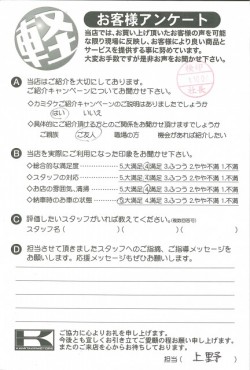 軽
お客様アンケート
当店では、お買い上げ頂いたお客様の声を可能
な限り現場に反映し、お客様により良い商品と
サービスを提供する事に努めています。
大変お手数ですが是非お声をお聞かせ下さい。
A 当店はご紹介を大切にしております。
ご紹介キャンペーンについてお聞かせください。
◇カミタケご紹介キャンペーンのご説明はありましたでしょうか
はい いいえ
◇具体的にご紹介頂けるとのご関係をお聞かせ頂けますでしょうか
ご親族 ご友人 職場の方 機会があれば紹介したい
B 当店を実際にご利用になった印象をお聞かせ下さい。
◇総合的な満足度 5.大満足 4.満足 3.ふつう 2.やや不満 1.不満
◇スタッフの対応 5.大満足 4.満足 3.ふつう 2.やや不満 1.不満
◇お店の雰囲気、清掃 5.大満足 4.満足 3.ふつう 2.やや不満 1.不満
◇納車時のお車の状態 5.大満足 4.満足 3.ふつう 2.やや不満 1.不満
C 評価したいスタッフがいれば教えてください。(複数回答可)
スタッフ名( )( )( )
D 担当させて頂きましたスタッフへのご指摘、ご指導メッセージを
お願いします。応援メッセージもぜひお願いします。
K
ご協力に心よりお礼を申し上げます。
今後とも宜しくお引き立てご愛顧の程お願い申し上げます。
またのご来店を心からお待ちしております。
担当( 上野 )